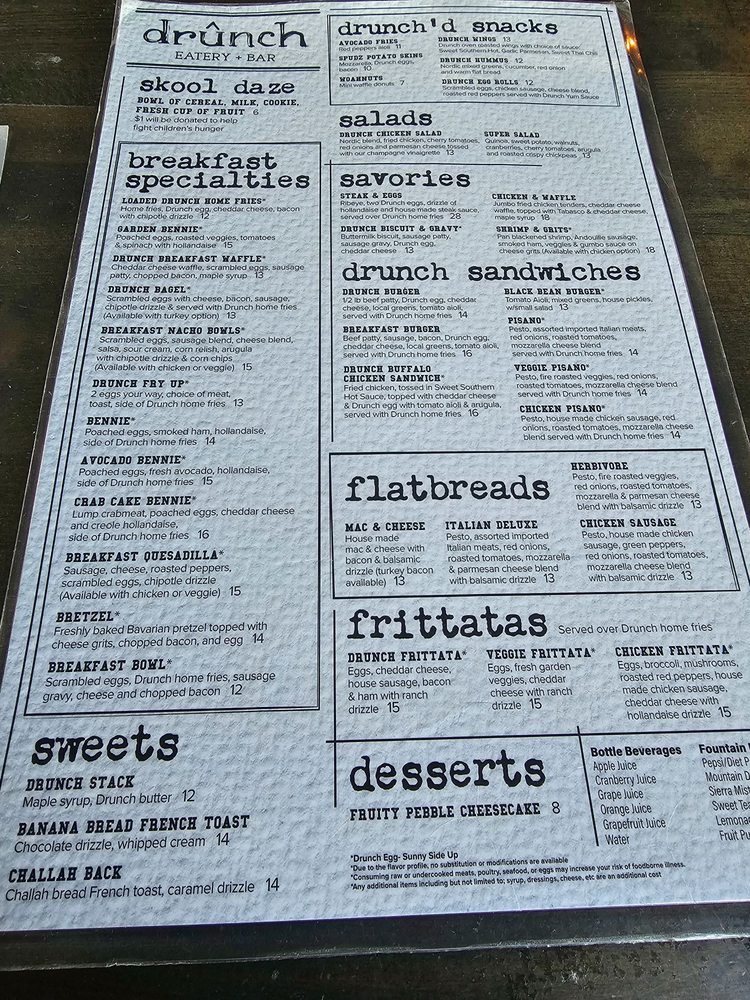 drûnch
EATERY + BAR
skool daze
BOWL OF CEREAL, MILK, COOKIE,
FRESH CUP OF FRUIT 6
$1 will be donated to help
fight children's hunger
breakfast
specialties
LOADED DRUNCH HOME FRIES*
Home fries, Drunch egg, cheddar cheese, bacon
with chipotle drizzle 12
GARDEN BENNIE*
Poached eggs, roasted veggies, tomatoes
& spinach with hollandaise 15
DRUNCH BREAKFAST WAFFLE*
Cheddar cheese waffle, scrambled eggs, sausage
patty, chopped bacon, maple syrup 13
DRUNCH BAGEL*
Scrambled eggs with cheese, bacon, sausage,
chipotle drizzle & served with Drunch Home fries
(Available with turkey option) 13
BREAKFAST NACHO BOWLS*
Scrambled eggs, sausage blend, cheese blend,
salsa, sour cream, corn relish, arugula
with chipotle drizzle & corn chips
(Available with chicken or veggie) 15
DRUNCH FRY UP*
2 eggs your way, choice of meat,
toast, side of Drunch home fries 13
BENNIE*
Poached eggs, smoked ham, hollandaise,
side of Drunch home fries 14
AVOCADO BENNIE*
Poached eggs, fresh avocado, hollandaise,
side of Drunch home fries 15
CRAB CAKE BENNIE*
Lump crabmeat, poached eggs, cheddar cheese
and creole hollandaise,
side of Drunch home fries 16
BREAKFAST QUESADILLA*
Sausage, cheese, roasted peppers,
scrambled eggs, chipotle drizzle
(Available with chicken or veggie) 15
BRETZEL*
Freshly baked Bavarian pretzel topped with
cheese grits, chopped bacon, and egg 14
BREAKFAST BOWL*
Scrambled eggs, Drunch home fries, sausage
gravy, cheese and chopped bacon 12
sweets
DRUNCH STACK
Maple syrup, Drunch butter 12
BANANA BREAD FRENCH TOAST
Chocolate drizzle, whipped cream 14
CHALLAH BACK
Challah bread French toast, caramel drizzle 14
drunch'd snacks
AVOCADO FRIES
Red peppers aioli 11
SPUDZ POTATO SKINS
Mozzarella, Drunch eggs,
bacon 10
WOAHNUTS
Mini waffle donuts 7
DRUNCH WINGS 13
Drunch oven roasted wings with choice of sauce:
Sweet Southern Hot, Garlic Parmesan, Sweet Thai Chili
DRUNCH HUMMUS 12
Nordic mixed greens, cucumber, red onion
and warm flat bread
DRUNCH EGG ROLLS 12
Scrambled eggs, chicken sausage, cheese blend,
roasted red peppers served with Drunch Yum Sauce
salads
DRUNCH CHICKEN SALAD
Nordic blend, fried chicken, cherry tomatoes,
red onions and parmesan cheese tossed
with our champagne vinaigrette 13
SUPER SALAD
Quinoa, sweet potato, walnuts,
cranberries, cherry tomatoes, arugula
and roasted crispy chickpeas 13
savories
STEAK & EGGS
Ribeye, two Drunch eggs, drizzle of
hollandaise and house made steak sauce,
served over Drunch home fries 28
DRUNCH BISCUIT & GRAVY*
Buttermilk biscuit, sausage patty,
sausage gravy, Drunch egg,
cheddar cheese 13
CHICKEN & WAFFLE
Jumbo fried chicken tenders, cheddar cheese
waffle, topped with Tabasco & cheddar cheese,
maple syrup 18
SHRIMP & GRITS*
Pan blackened shrimp, Andouille sausage,
smoked ham, veggies & gumbo sauce on
cheese grits (Available with chicken option) 18
drunch sandwiches
DRUNCH BURGER
1/2 lb beef patty, Drunch egg, cheddar
cheese, local greens, tomato aioli,
served with Drunch home fries 14
BREAKFAST BURGER
Beef patty, sausage, bacon, Drunch egg,
cheddar cheese, local greens, tomato aioli,
served with Drunch home fries 16
DRUNCH BUFFALO
CHICKEN SANDWICH*
Fried chicken, tossed in Sweet Southern
Hot Sauce, topped with cheddar cheese
& Drunch egg with tomato aioli & arugula,
served with Drunch home fries 16
BLACK BEAN BURGER*
Tomato Aioli, mixed greens, house pickles,
w/small salad 13
PISANO*
Pesto, assorted imported Italian meats,
red onions, roasted tomatoes,
mozzarella cheese blend
served with Drunch home fries 14
VEGGIE PISANO*
Pesto, fire roasted veggies, red onions,
roasted tomatoes, mozzarella cheese blend
served with Drunch home fries 14
CHICKEN PISANO*
Pesto, house made chicken sausage, red
onions, roasted tomatoes, mozzarella cheese
blend served with Drunch home fries 14
flatbreads
MAC & CHEESE
House made
mac & cheese with
bacon & balsamic
drizzle (turkey bacon
available) 13
ITALIAN DELUXE
Pesto, assorted imported
Italian meats, red onions,
roasted tomatoes, mozzarella
& parmesan cheese blend
with balsamic drizzle 13
HERBIVORE
Pesto, fire roasted veggies,
red onions, roasted tomatoes,
mozzarella & parmesan cheese
blend with balsamic drizzle 13
CHICKEN SAUSAGE
Pesto, house made chicken
sausage, green peppers,
red onions, roasted tomatoes,
mozzarella cheese blend
with balsamic drizzle 13
frittatas Served over Drunch home fries
DRUNCH FRITTATA*
Eggs, cheddar cheese,
house sausage, bacon
& ham with ranch
drizzle 15
VEGGIE FRITTATA*
Eggs, fresh garden
veggies, cheddar
cheese with ranch
drizzle 15
CHICKEN FRITTATA*
Eggs, broccoli, mushrooms,
roasted red peppers, house
made chicken sausage,
cheddar cheese with
hollandaise drizzle 15
desserts
FRUITY PEBBLE CHEESECAKE 8
Bottle Beverages
Apple Juice
Cranberry Juice
Grape Juice
Orange Juice
Grapefruit Juice
Water
Fountain
Pepsi/Diet P
Mountain D
Sierra Mist
Sweet Tea
Lemona
Fruit Pu
*Drunch Egg- Sunny Side Up
*Due to the flavor profile, no substitution or modifications are available
*Consuming raw or undercooked meats, poultry, seafood, or eggs may increase your risk of foodborne illness.
*Any additional items including but not limited to; syrup, dressings, cheese, etc are an additional cost